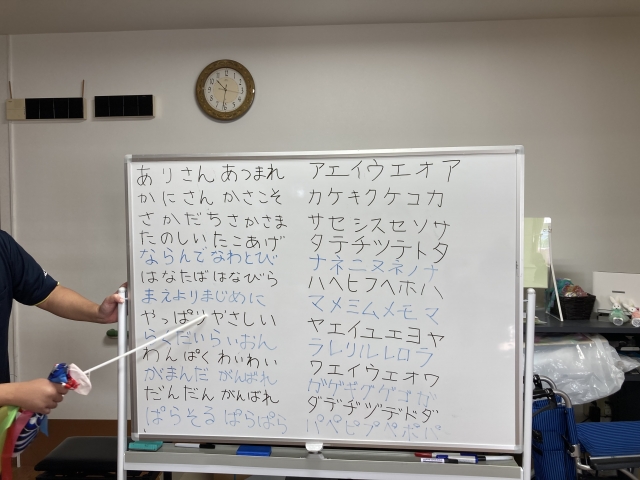 ありさん あつまれ
かにさん かさこそ
さかだち さかさま
たのしい たこあげ
ならんで なわとび
はなたば はなびら
まえより まじめに
やっぱり やさしい
らくだい らいおん
わんぱく わいわい
がまんだ がんばれ
だんだん がんばれ
ぱらそる ぱらぱら
アエイウエオア
カケキクケコカ
サセシスセソサ
タテチツテトタ
ナネニヌネノナ
ハヘヒフヘホハ
マメミムメモマ
ヤエイユエヨヤ
ラレリルレロラ
ワエイウエオワ
ガゲギグゲゴガ
ダデヂヅデドダ
パペピプペポパ